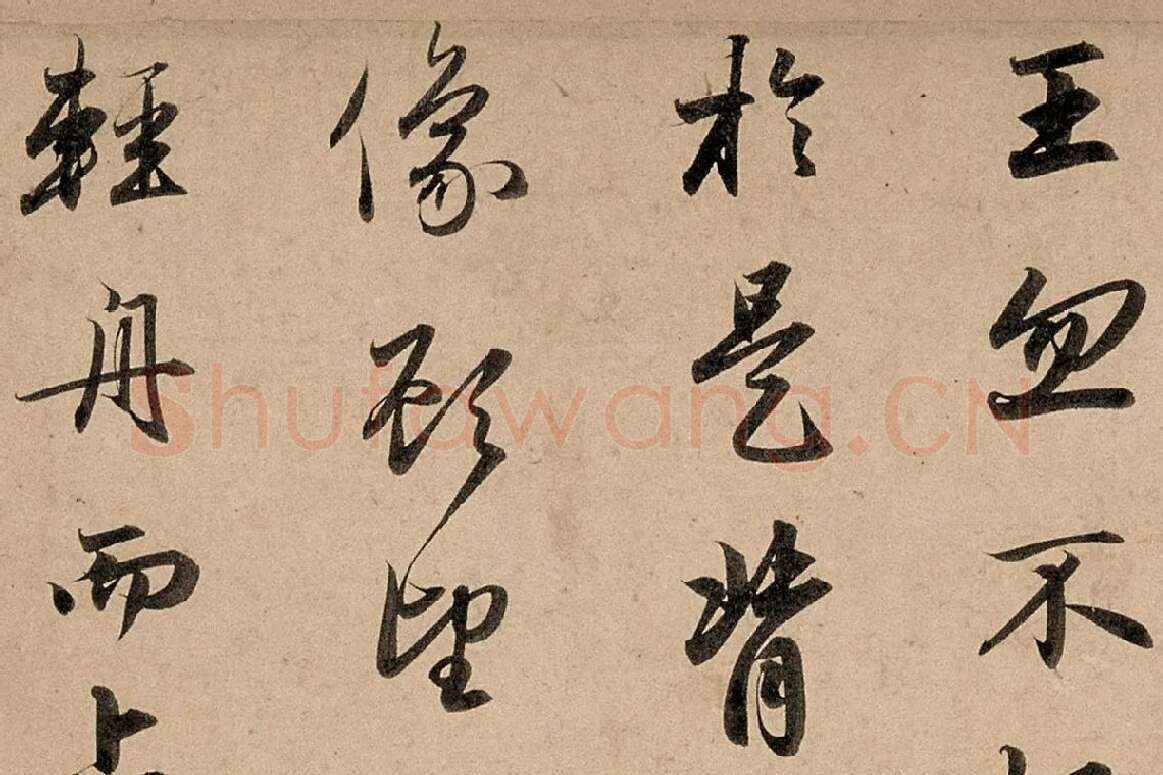 王忽不
於是背
像顧望
輕舟而上
Shufawang.CN